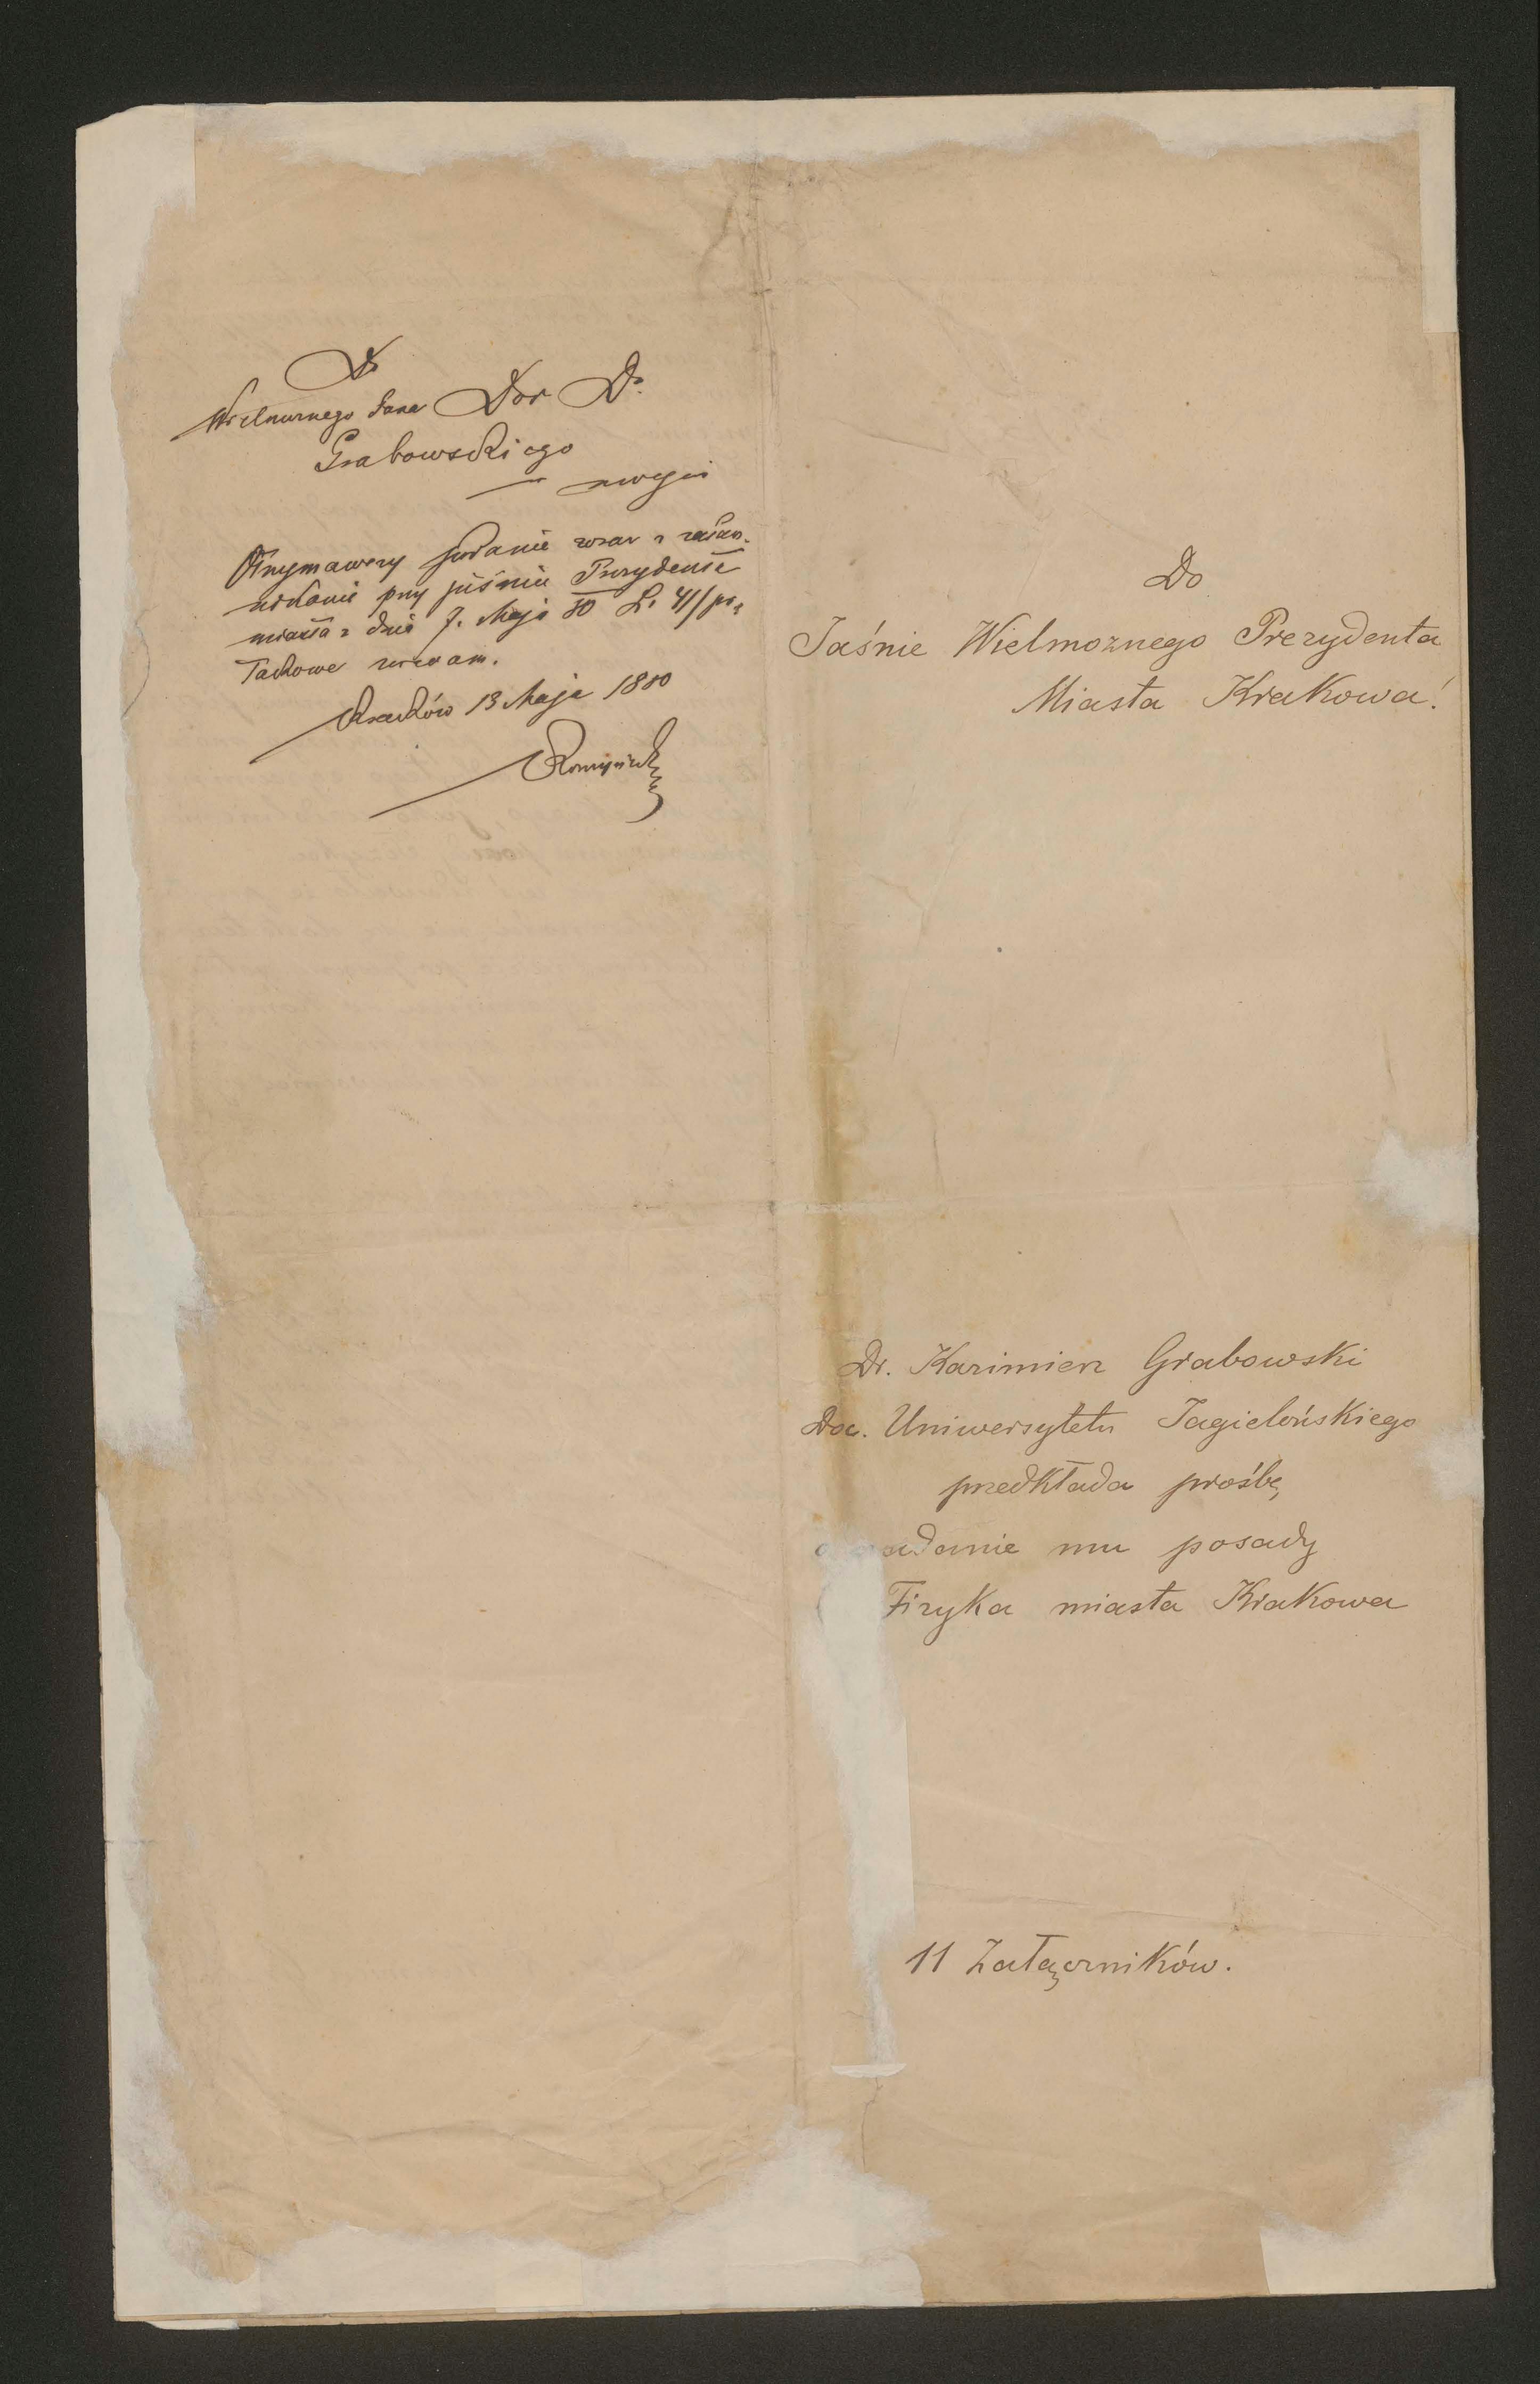 Do
Wielmożnego Pana Dor D.
Grabowskiego
w miejscu
Otrzymawszy podanie wraz z załącz-
nikami przy piśmie Prezydenta
miasta z dnia 7. Maja 80 L. 41/pr.
takowe zwracam.
Kraków 13 Maja 1880
Do
Jaśnie Wielmożnego Prezydenta
Miasta Krakowa!
Dr. Kazimierz Grabowski
Doc. Uniwersytetu Jagielońskiego
przedkłada prośbę
adanie mu posady
Fizyka miasta Krakowa
11 Załączników.